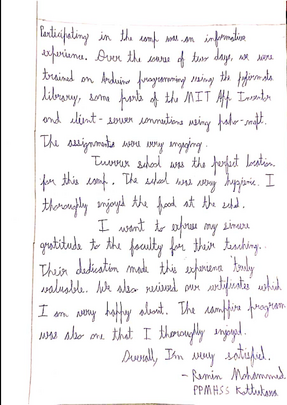 Participating in the camp was an informative
experience. Over the course of two days, we were
trained on Arduino programming using the pyfirmata
library, some parts of the MIT App Inventor
and client-server connections using paho-mqtt.
The assignments were very engaging.
school was the perfect location
for this camp. The school was very hygienic. I
thoroughly enjoyed the food at the school.
I want to express my sincere
gratitude to the faculty for their teaching.
Their dedication made this experience truly
valuable. We also recieved our certificates which
I am very happy about. The campfire program
was also one that I thoroughly enjoyed.
Overall, I'm very satisfied.
- Remin Mohammed
PPMHSS Kottukkara